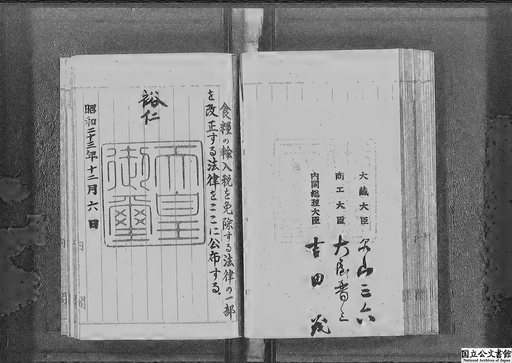 食糧の輸入税を免除する法律の一部
を改正する法律をここに公布する。
裕仁
天皇
御璽
昭和二十三年十二月六日
大藏大臣
商工大臣
内閣総理大臣
吉田茂
国立公文書館
National Archives of Japan